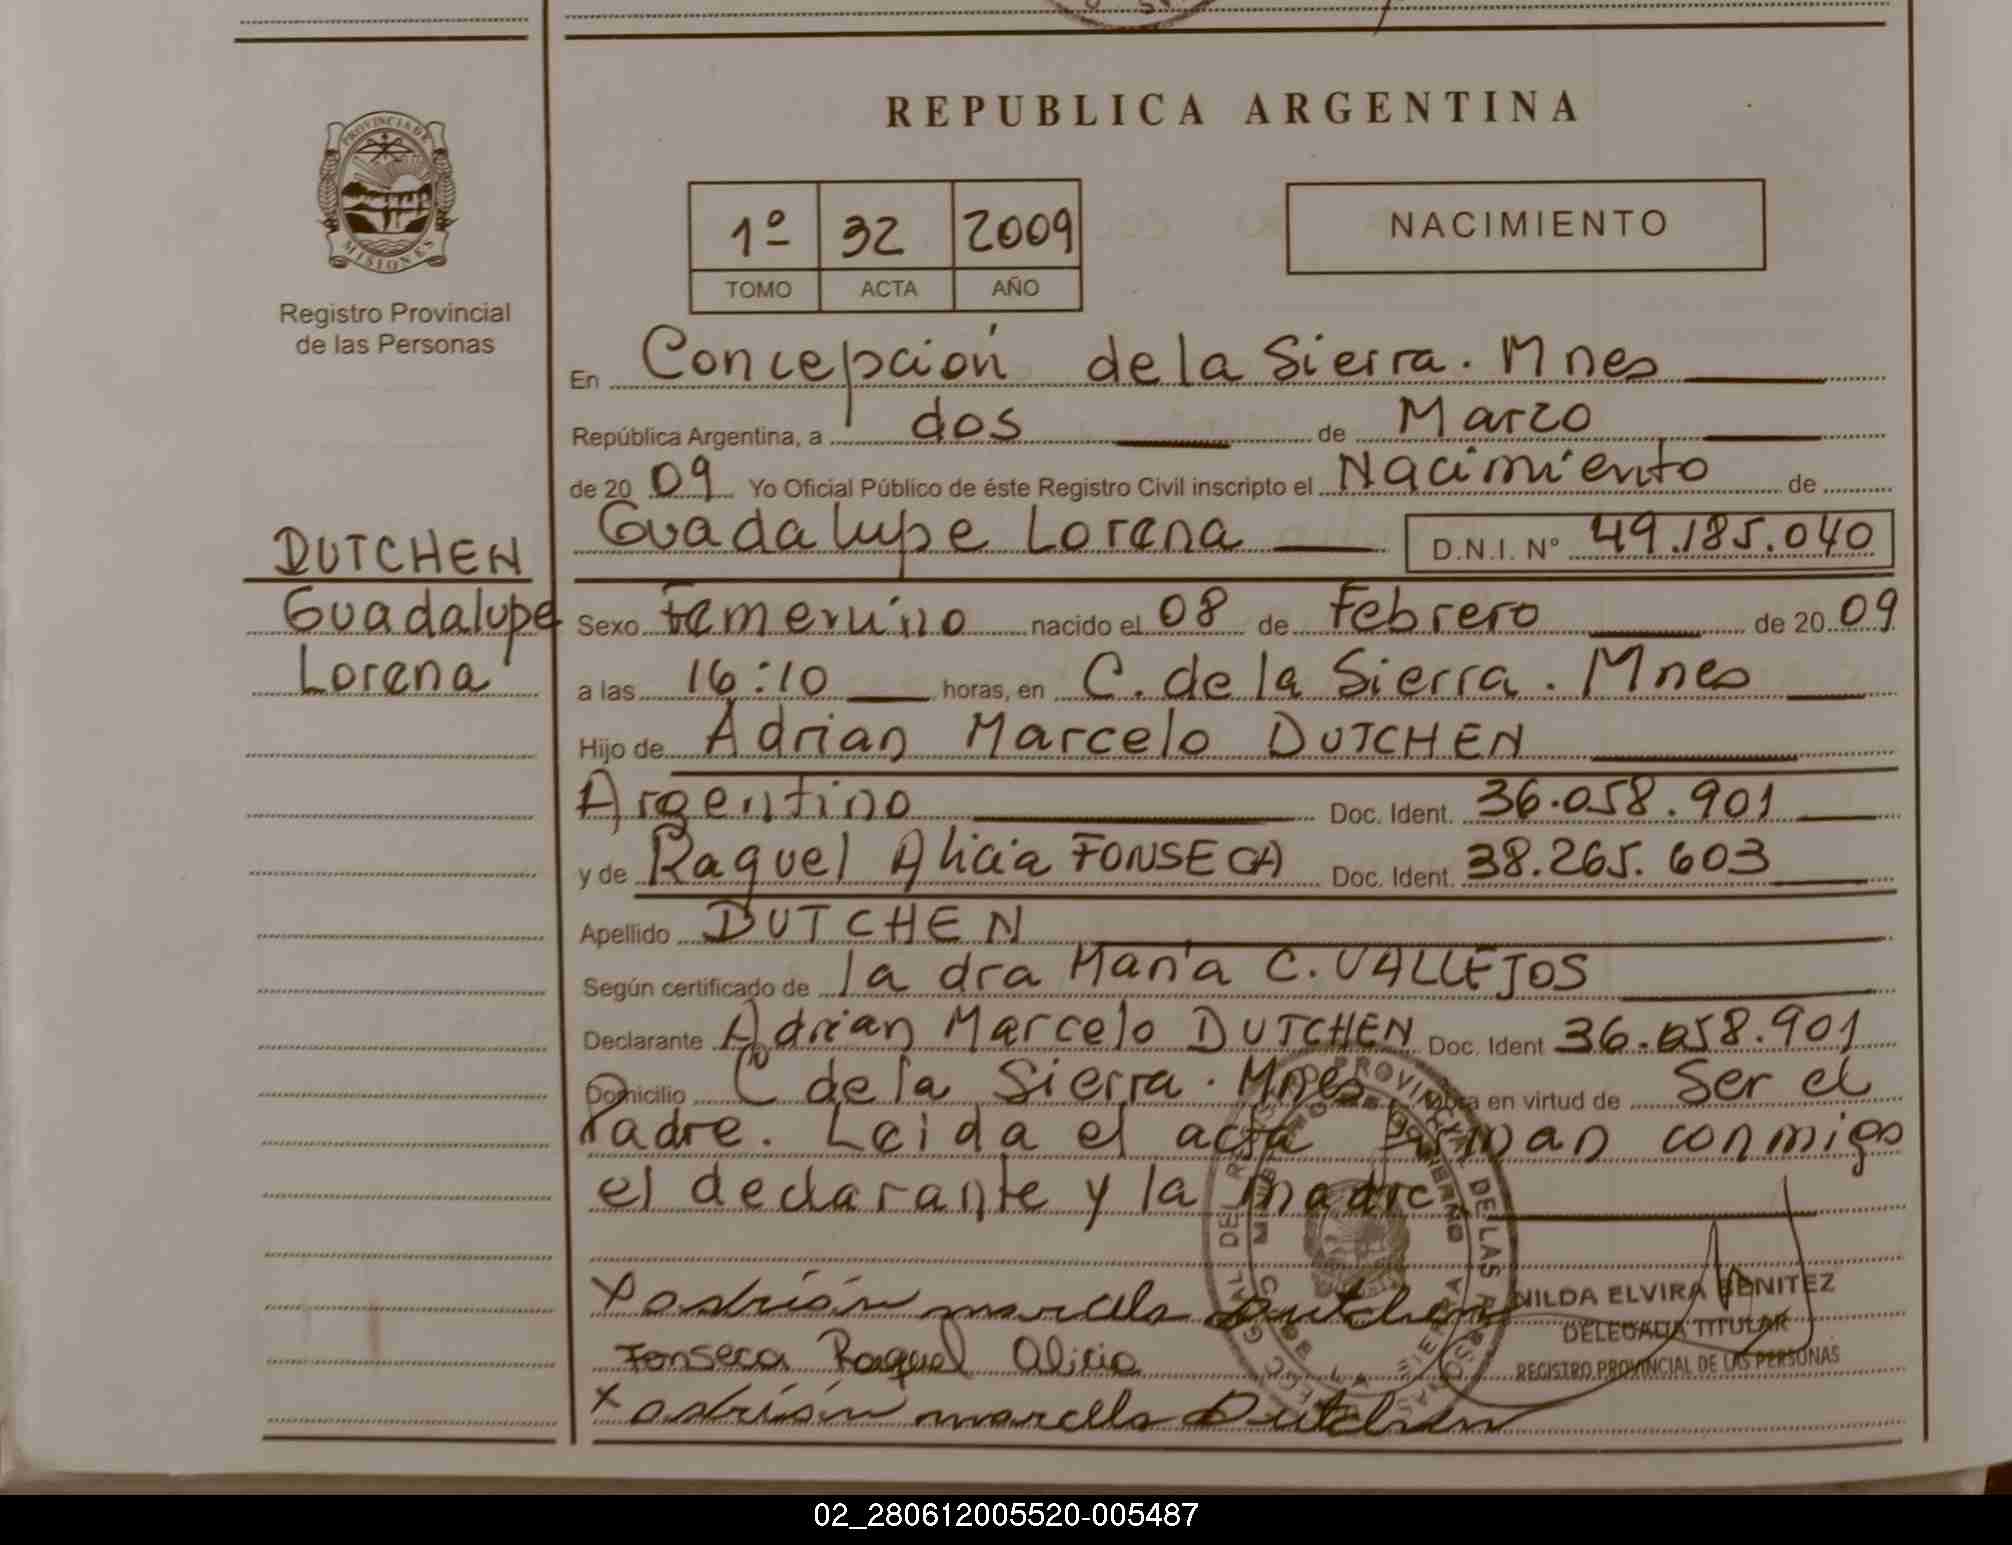 REPUBLICA ARGENTINA
PROVINCIA DE
MISIONES
Registro Provincial
de las Personas
1º 32 2009
TOMO ACTA AÑO
NACIMIENTO
En Concepción de la Sierra. Mnes
República Argentina, a dos de Marzo
de 20 09 Yo Oficial Público de éste Registro Civil inscripto el Nacimiento de
Guadalupe Lorena D.N.I. Nº 49.185.040
DUTCHEN
Guadalupe
Lorena
Sexo Femenino nacido el 08 de Febrero de 20 09
a las 16:10 horas, en C. de la Sierra. Mnes
Hijo de Adrian Marcelo DUTCHEN
Argentino Doc. Ident. 36.058.901
y de Raquel Alicia FONSECA Doc. Ident. 38.265.603
Apellido DUTCHEN
Según certificado de la dra María C. VALLEJOS
Declarante Adrian Marcelo DUTCHEN Doc. Ident 36.058.901
Domicilio C de la Sierra. Mnes Obra en virtud de Ser el
Padre. Leida el acta Firman conmigo
el declarante y la madre
x Adrián marcelo Dutchen
Fonseca Raquel Alicia
x Adrián marcelo Dutchen
NILDA ELVIRA BENITEZ
DELEGADA TITULAR
REGISTRO PROVINCIAL DE LAS PERSONAS
02_280612005520-005487